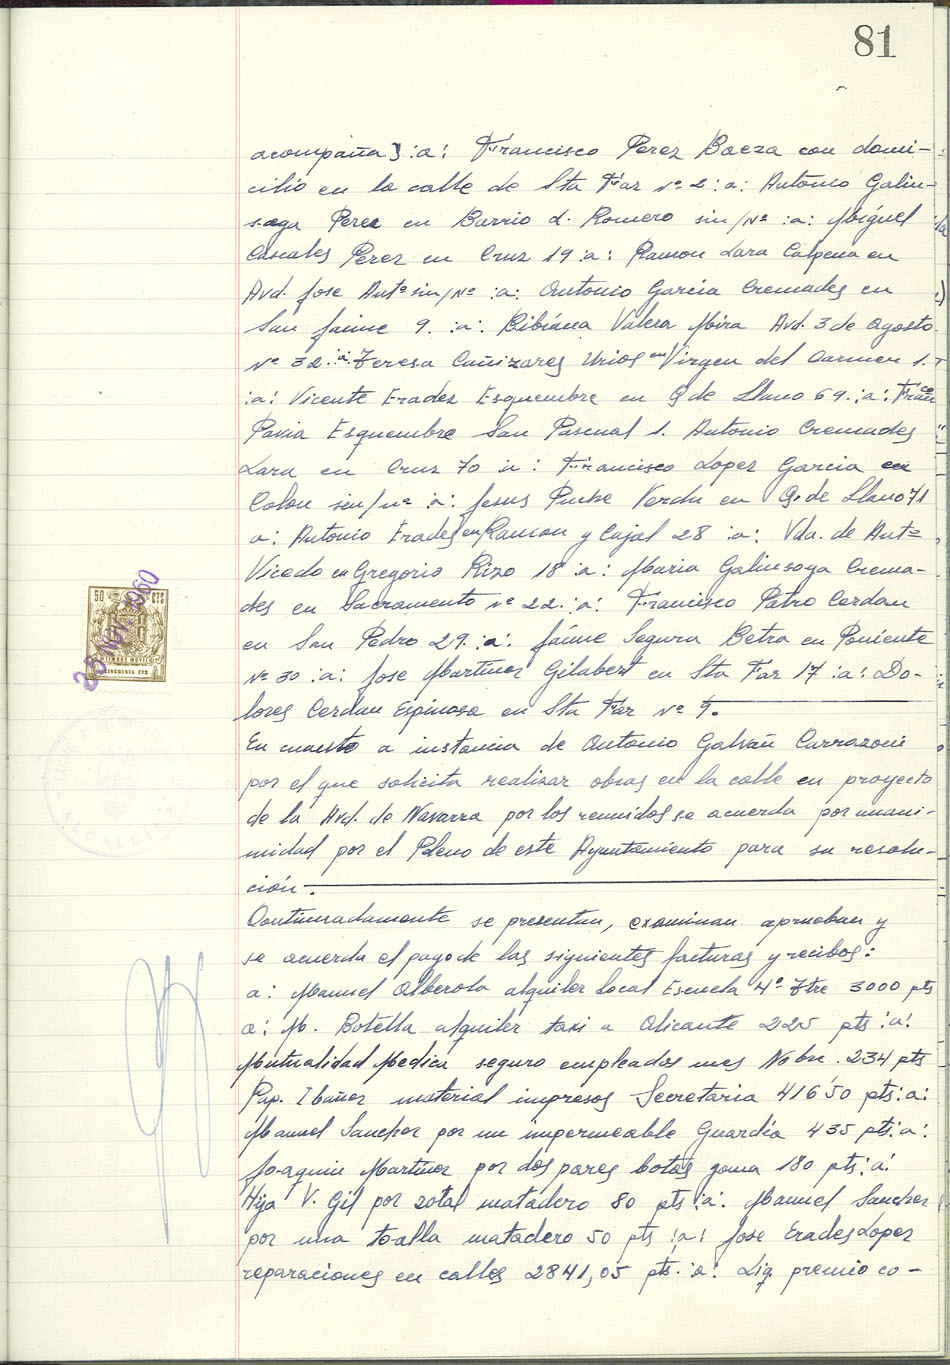 81
acompaña) :a: Francisco Perez Baeza con domi-
cilio en la calle de Sta Faz nº 2 :a: Antonio Galin-
soga Perea en Barrio d. Romero sin/nº :a: Miguel
Cascales Perez en Cruz 19 :a: Ramon Lara Calpena en
Avd. Jose Antº sin/nº :a: Antonio Garcia Cremades en
San Jaime 9. :a: Bibiana Valera Mira Avd. 3 de Agosto
nº 32 :a: Teresa Cañizares Urios en Virgen del Carmen 1.
:a: Vicente Erades Esquembre en Gº de Llano 69 :a: Franco
Pavia Esquembre San Pascual 1. Antonio Cremades
Lara en Cruz 70 :a: Francisco Lopez Garcia en
Colon sin/nº :a: Jesus Puche Verdu en Gº de Llano 71
a: Antonio Erades en Ramon y Cajal 28 :a: Vda. de Antº
Vicedo en Gregorio Rizo 18 :a: Maria Galinsoga Crema-
des en Sacramento nº 22 :a: Francisco Patro Cerdan
en San Pedro 29 :a: Jaime Segura Betra en Poniente
nº 30 :a: Jose Martinez Gilabert en Sta Faz 17 :a: Do-
lores Cerdan Espinosa en Sta Faz nº 9.
En cuanto a instancia de Antonio Galvañ Carrazoni
por el que solicita realizar obras en la calle en proyecto
de la Avd. de Navarra por los reunidos se acuerda por unani-
midad por el Pleno de este Ayuntamiento para su resolu-
ción.
Continuadamente se presentan, examinan aprueban y
se acuerda el pago de las siguientes facturas y recibos:
a: Manuel Alberola alquiler local Escuela 4º Ztre 3000 pts
a: M. Botella alquiler taxi a Alicante 225 pts :a:
Mutualidad Medica seguro empleados mes Nobre. 234 pts
Pap. Ibañez material impresos Secretaria 416'50 pts :a:
Manuel Sanchez por un impermeable Guardia 435 pts :a:
Joaquin Martinez por dos pares botas goma 180 pts :a:
Hija V. Gil por zotal matadero 80 pts :a: Manuel Sanchez
por una toalla matadero 50 pts :a: Jose Erades Lopez
reparaciones en calles 2841,05 pts :a: Liq. premio co-
50 CTS
TIMBRE MOVIL
CINCUENTA CTS
25 NOV. 1960
ALCALDIA